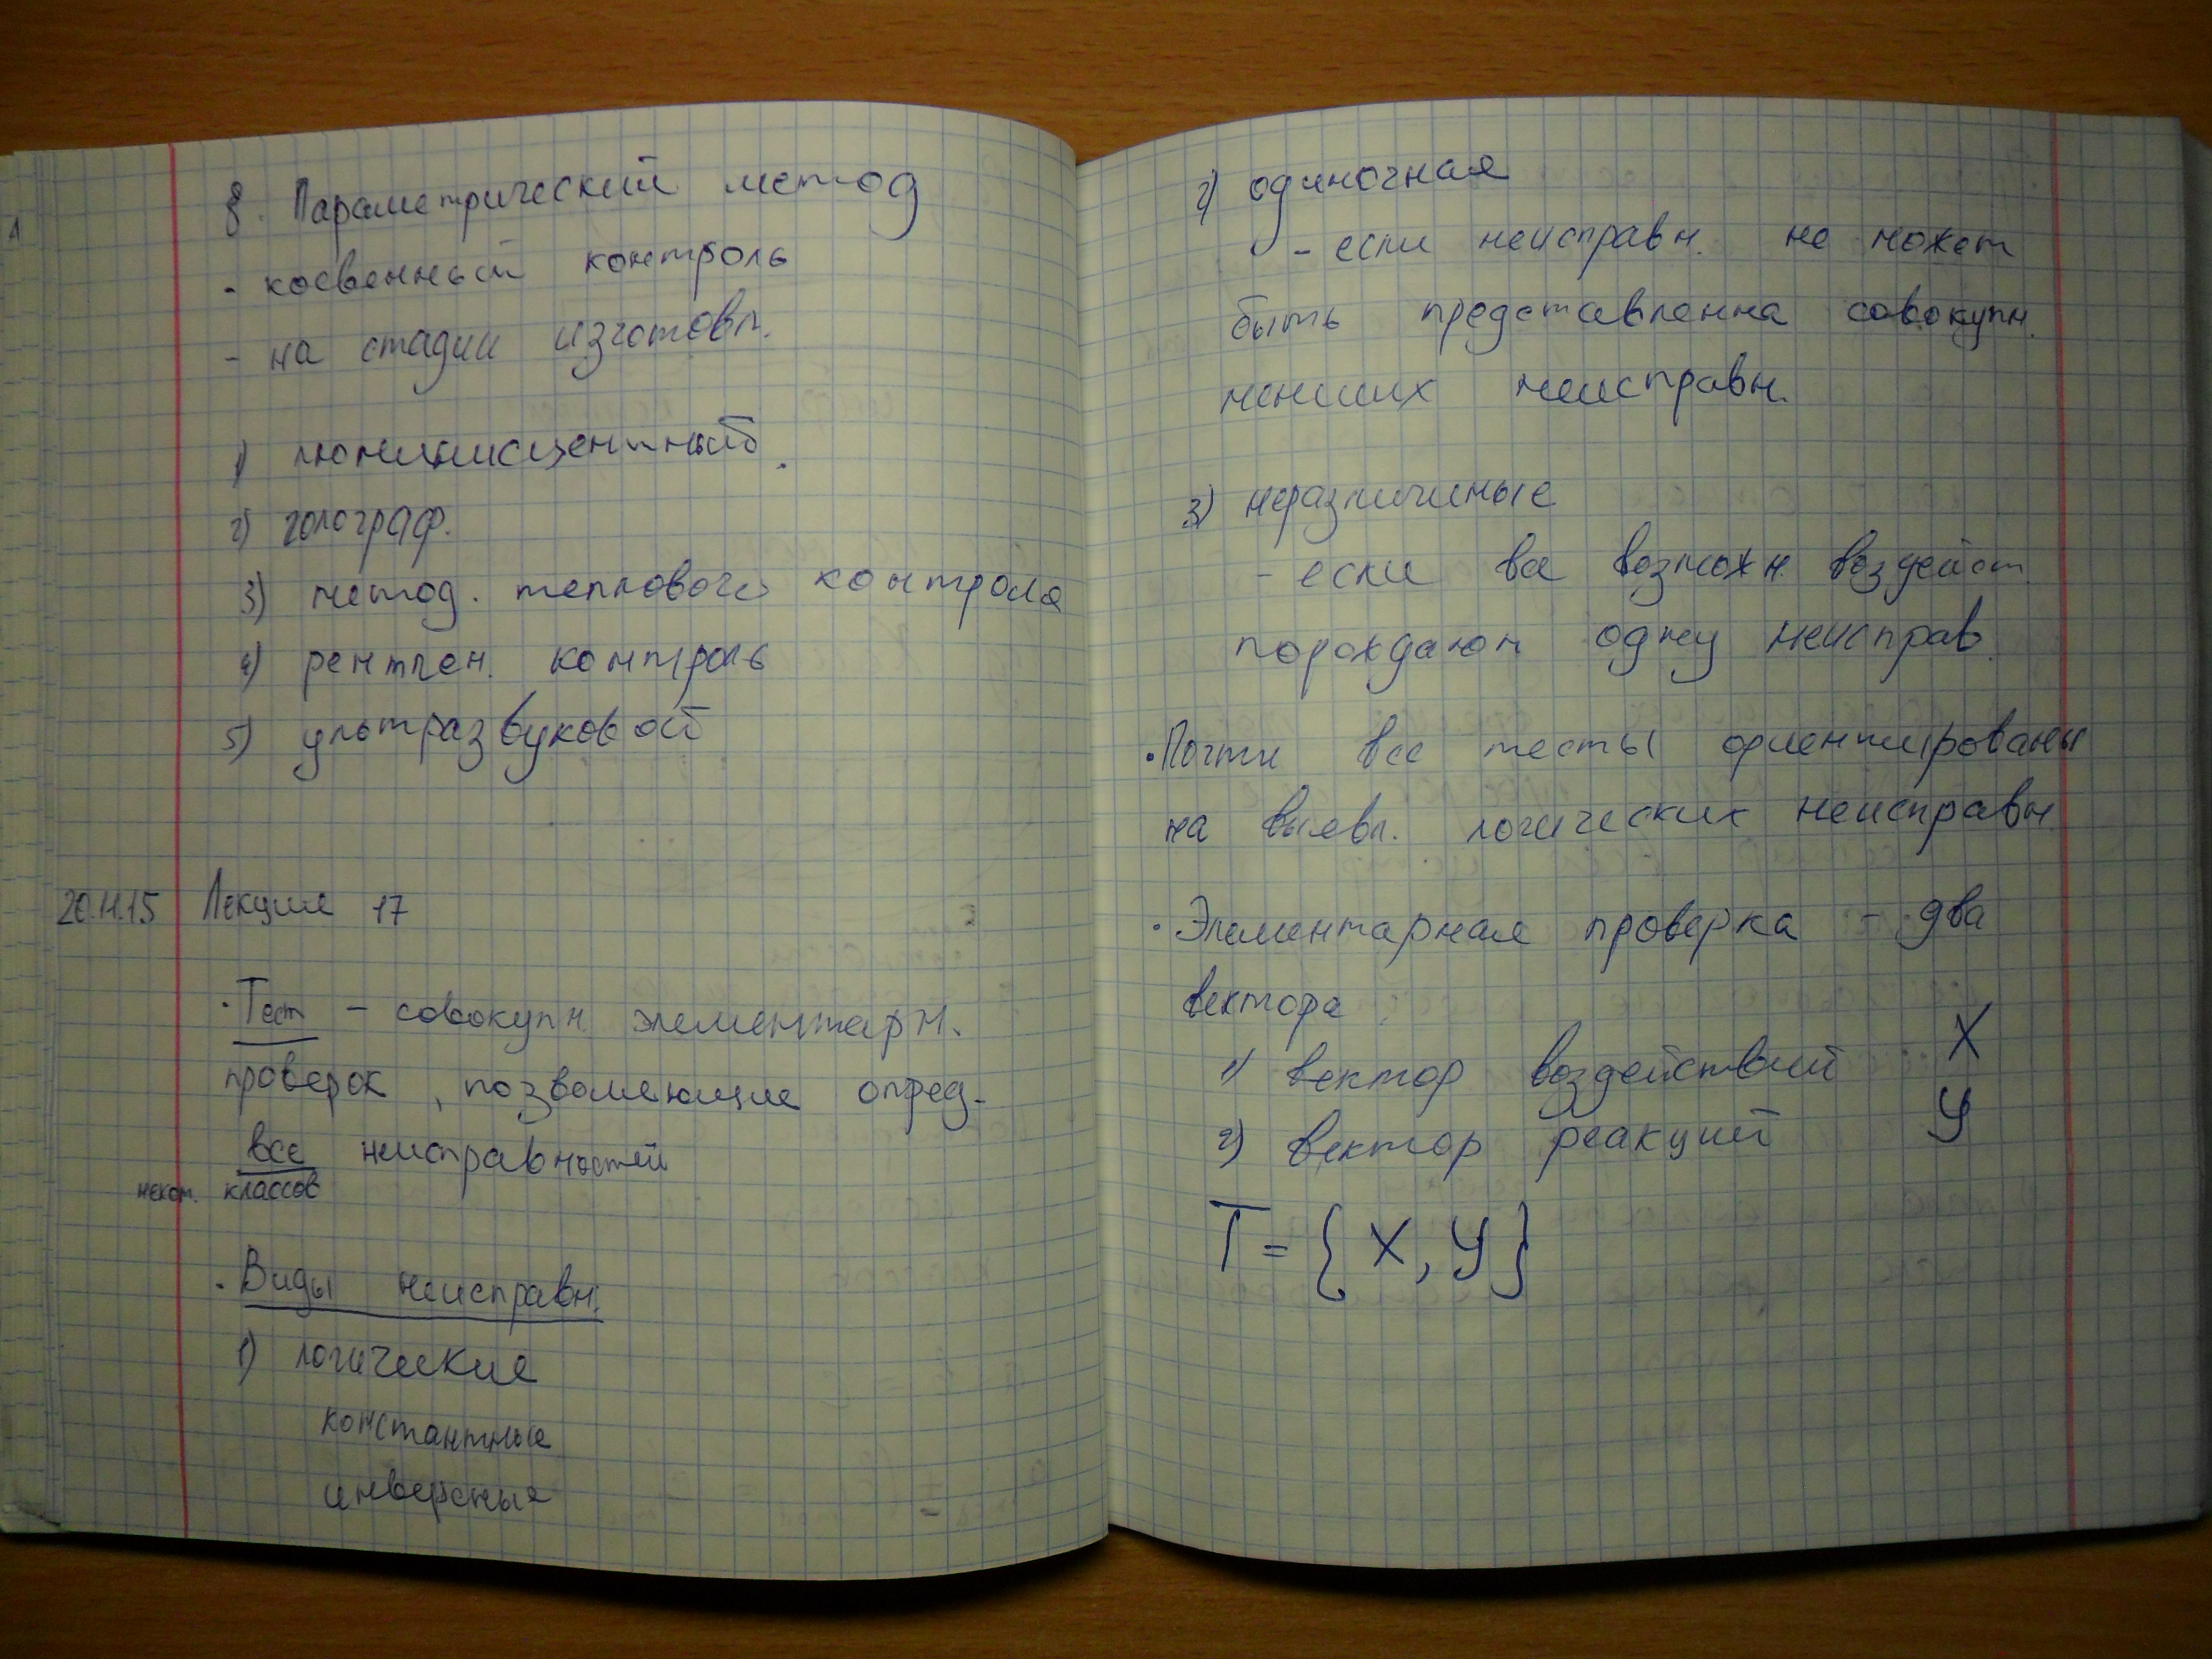 8. Параметрический метод
- косвенный контроль
- на стадии изготовл.
1) люминисцентный.
2) голограф.
3) метод. теплового контроля
4) рентген. контроль
5) ультразвуковой
20.11.15 Лекция 17
· Тест - совокупн. элементарн.
проверок, позволяющие опред-
все неисправностей
некот. классов
· Виды неисправн.
1) логические
константные
инверсные
2) одиночная
- если неисправн. не может
быть представленна совокупн.
менших неисправн.
3) неразличимые
- если все возможн. воздейст.
порождают одну неисправ.
· Почти все тесты ориентированы
на выявл. логических неисправн.
· Элементарная проверка - два
вектора
1) вектор воздействий X
2) вектор реакций Y
T = {X, Y}